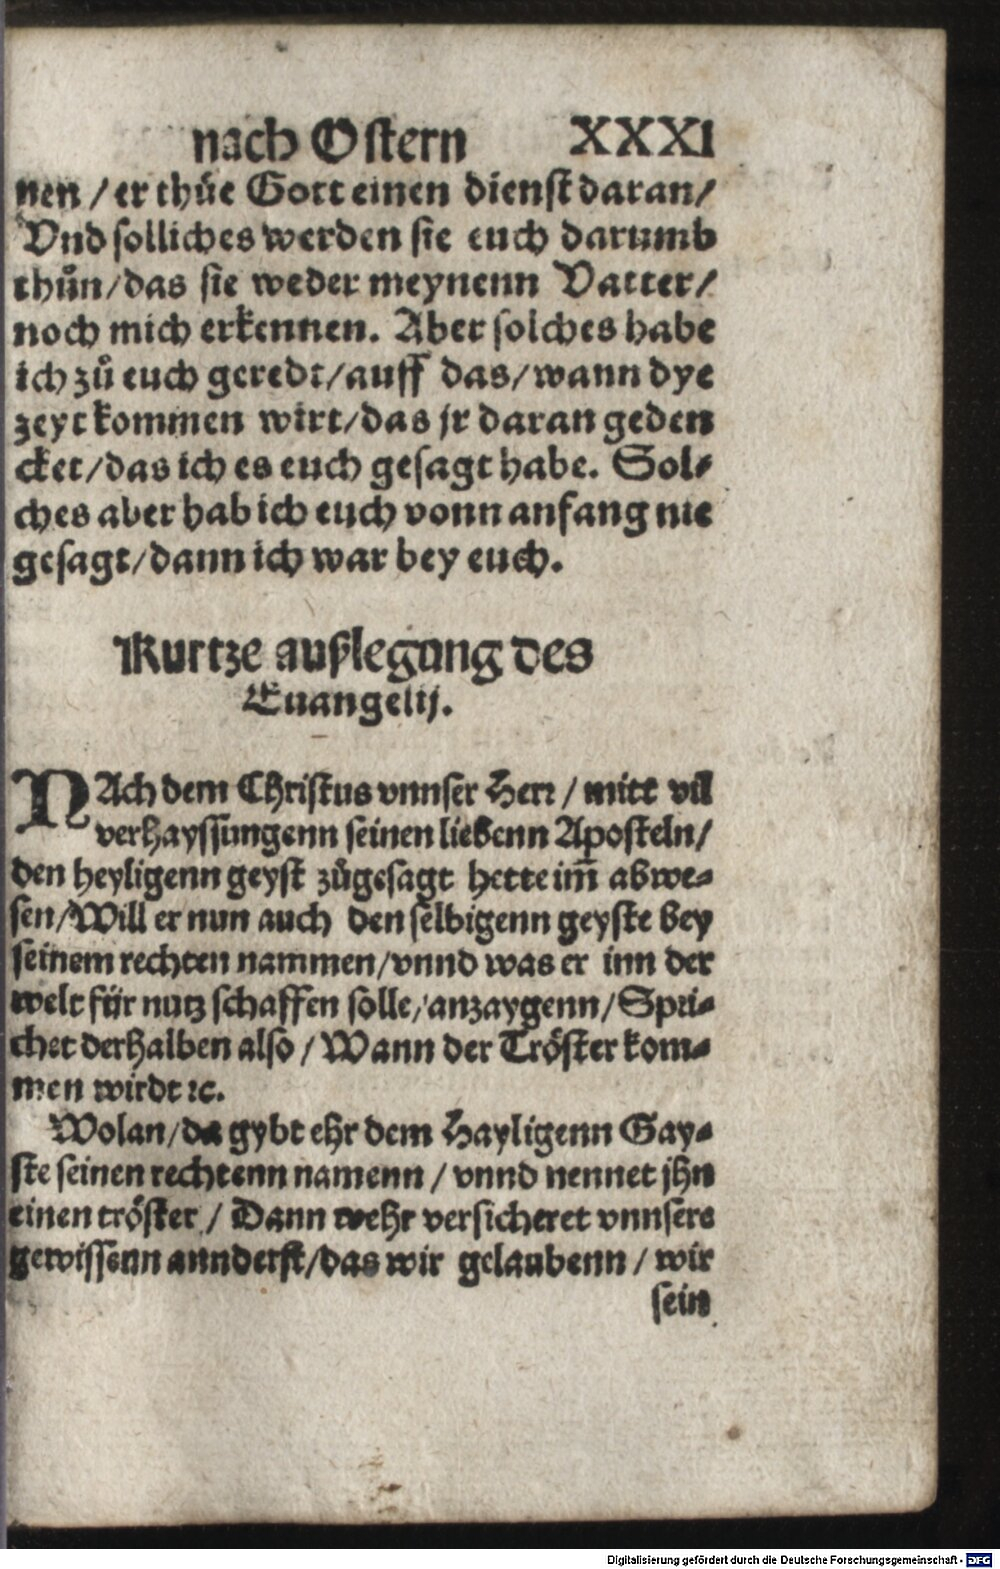 nach Ostern XXXI
nen / er thůe Gott einen dienst daran /
Vnd solliches werden sie euch darumb
thůn / das sie weder meynenn Vatter /
noch mich erkennen. Aber solches habe
ich zů euch geredt / auff das / wann dye
zeyt kommen wirt / das jr daran geden
cket / das ich es euch gesagt habe. Sol⸗
ches aber hab ich euch vonn anfang nie
gesagt / dann ich war bey euch.
Kurtze außlegung des
Euangelij.
NAch dem Christus vnnser Herr / mitt vil
verhayssungenn seinen liebenn Aposteln /
den heyligenn geyst zůgesagt hette im̃ abwe⸗
sen / Will er nun auch den selbigenn geyste bey
seinem rechten nammen / vnnd was er inn der
welt für nutz schaffen solle / anzaygenn / Spri⸗
chet derhalben also / Wann der Tröster kom⸗
men wirdt ꝛc.
Wolan / da gybt ehr dem Hayligenn Gay⸗
ste seinen rechtenn namenn / vnnd nennet jhn
einen tröster / Dann wehr versicheret vnnsere
gewissenn annderst / das wir gelaubenn / wir
sein
Digitalisierung gefördert durch die Deutsche Forschungsgemeinschaft - DFG